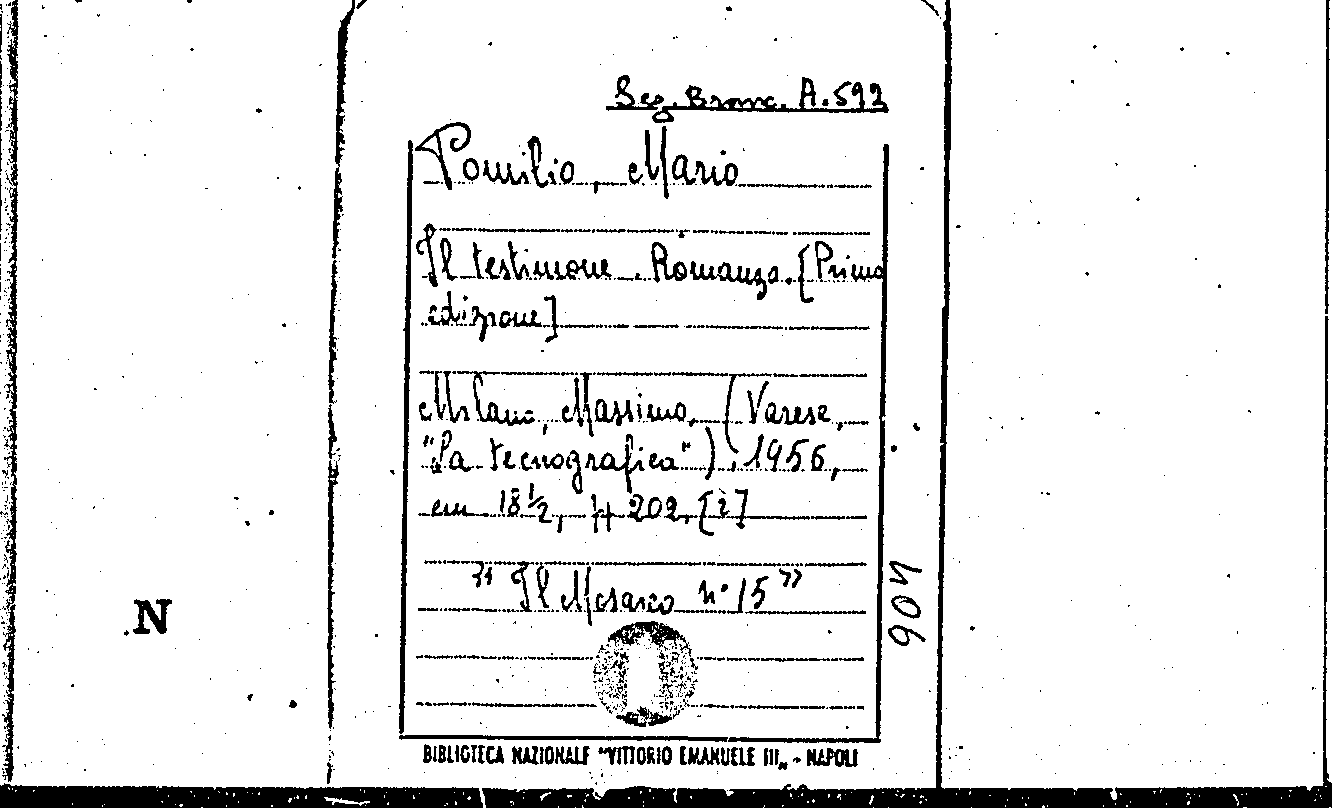 Seg. Bronc. A.592
Pomilio, Mario
Il testimone. Romanzo. [Prima
edizione]
Milano, Massimo, (Varese,
"La tecnografica"), 1956,
cm 18 ½, pp 202, [2]
"Il Mosaico n° 15"
406
N
BIBLIOTECA NAZIONALE "VITTORIO EMANUELE III„ - NAPOLI